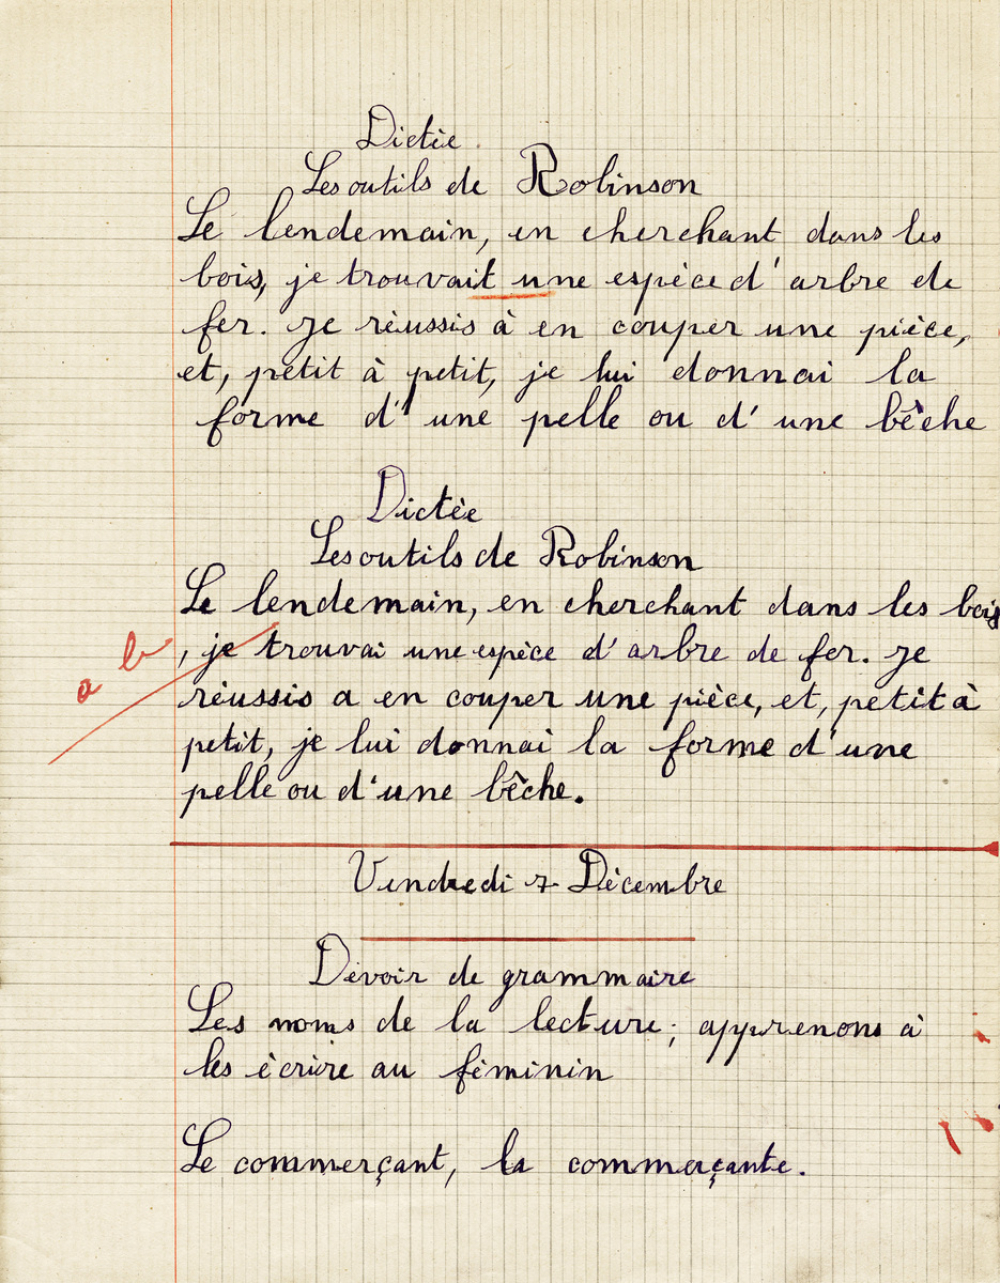 Dictée
Les outils de Robinson
Le lendemain, en cherchant dans les
bois, je trouvait une espèce d'arbre de
fer. Je réussis à en couper une pièce,
et, petit à petit, je lui donnai la
forme d'une pelle ou d'une bêche
Dictée
Les outils de Robinson
Le lendemain, en cherchant dans les bois
, je trouvai une espèce d'arbre de fer. Je
réussis a en couper une pièce, et, petit à
petit, je lui donnai la forme d'une
pelle ou d'une bêche.
Vendredi 7 Décembre
Devoir de grammaire
Les noms de la lecture; apprenons à
les écrire au féminin
Le commerçant, la commerçante.